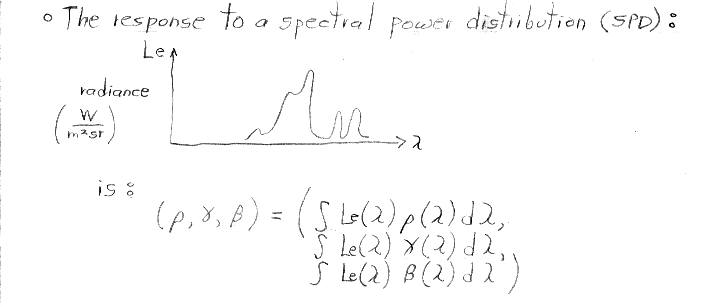 ∘ The response to a spectral power distribution (SPD):
Le
radiance
(W/m²sr)
λ
is:
(ρ, γ, β) = (∫ Le(λ) ρ(λ) dλ,
∫ Le(λ) γ(λ) dλ,
∫ Le(λ) β(λ) dλ)